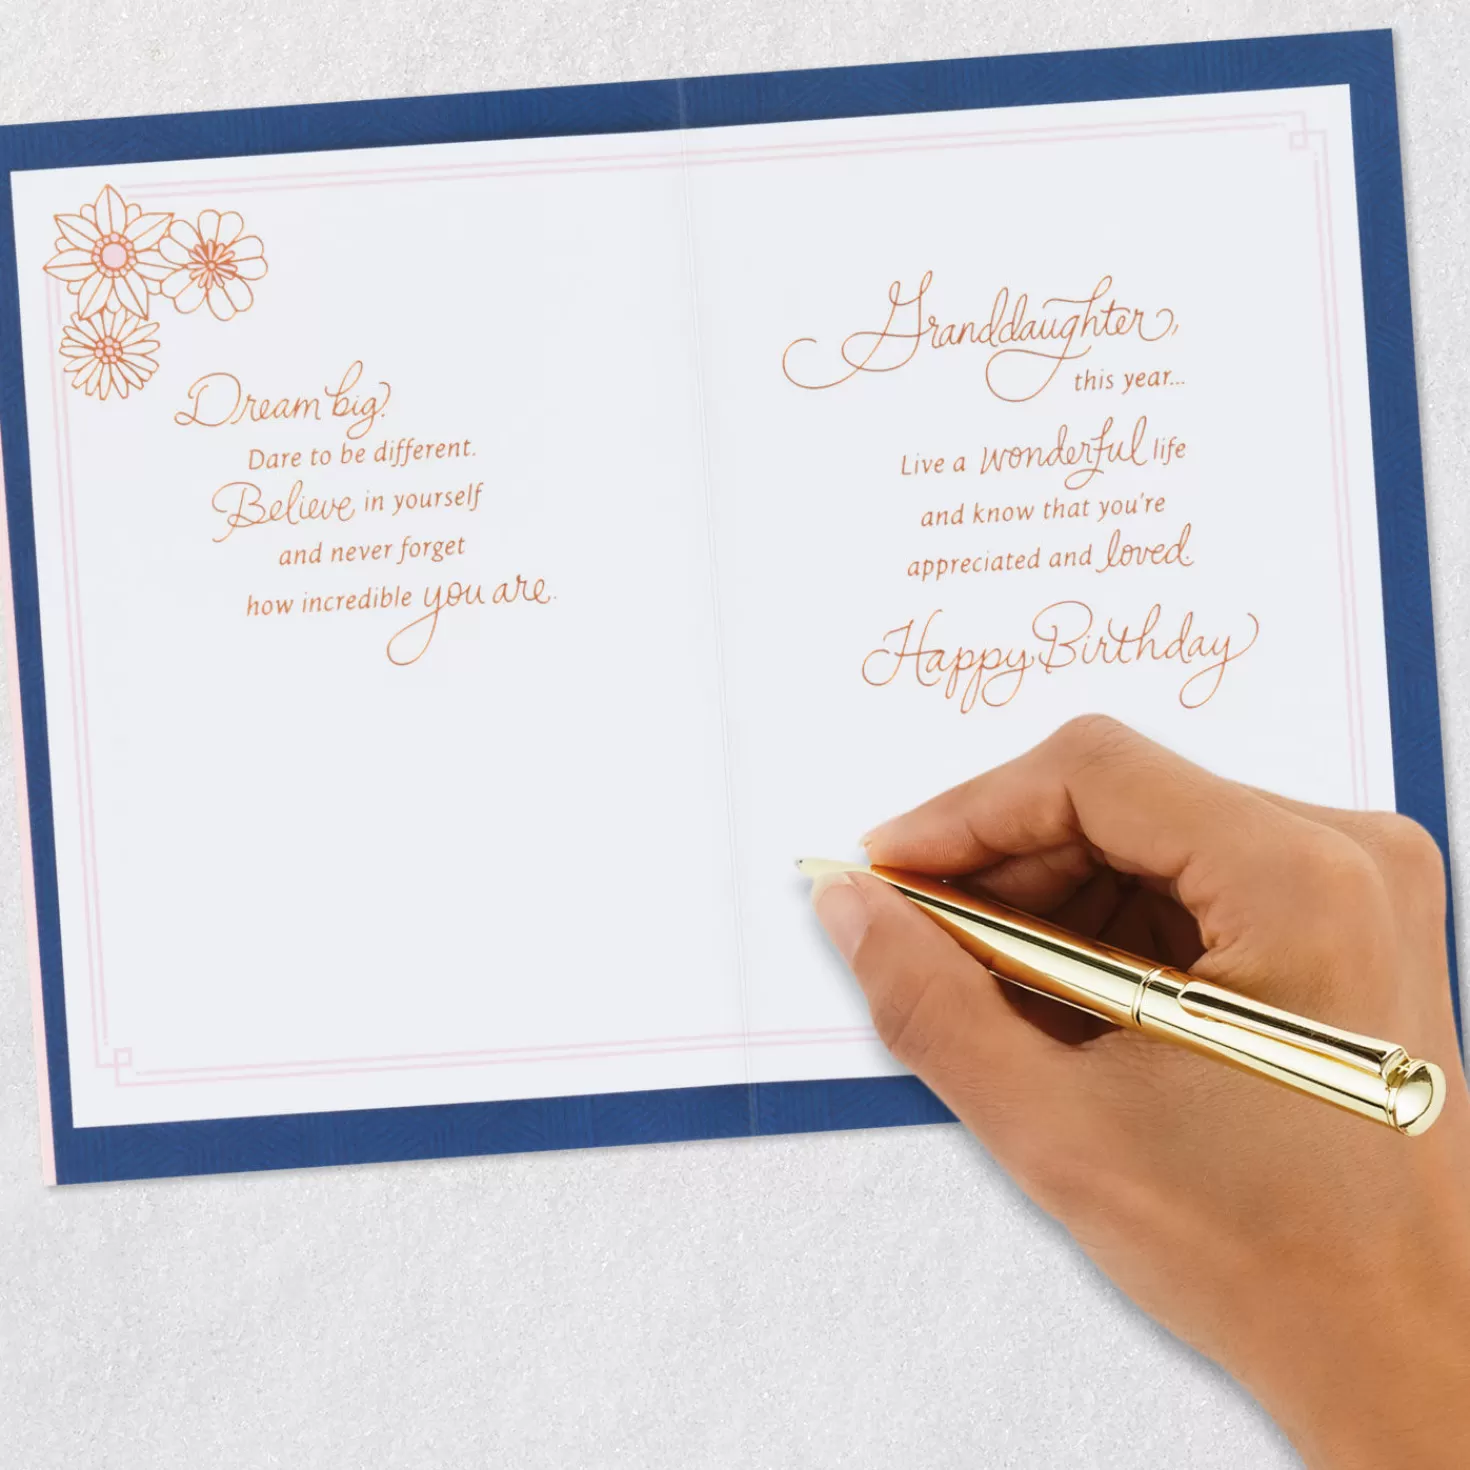 Dream big.
Dare to be different.
Believe in yourself
and never forget
how incredible you are.
Granddaughter,
this year...
Live a wonderful life
and know that you're
appreciated and loved.
Happy Birthday